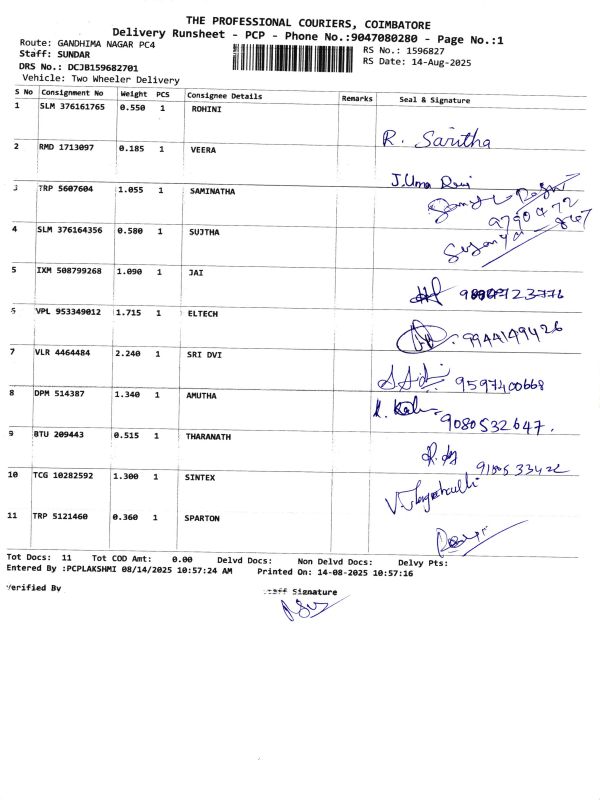 THE PROFESSIONAL COURIERS, COIMBATORE
Delivery Runsheet - PCP - Phone No.:9047080280 - Page No.:1
Route: GANDHIMA NAGAR PC4
Staff: SUNDAR
DRS No.: DCJB159682701
Vehicle: Two Wheeler Delivery
RS No.: 1596827
RS Date: 14-Aug-2025
S No Consignment No Weight PCS Consignee Details Remarks Seal & Signature
1 SLM 376161765 0.550 1 ROHINI
R. Saritha
2 RMD 1713097 0.185 1 VEERA
J.Uma Devi
3 TRP 5607604 1.055 1 SAMINATHA
4 SLM 376164356 0.580 1 SUJTHA
5 IXM 508799268 1.090 1 JAI
6 VPL 953349012 1.715 1 ELTECH
9944149426
7 VLR 4464484 2.240 1 SRI DVI
9597400668
8 DPM 514387 1.340 1 AMUTHA
9080532647.
9 BTU 209443 0.515 1 THARANATH
10 TCG 10282592 1.300 1 SINTEX
11 TRP 5121460 0.360 1 SPARTON
Tot Docs: 11 Tot COD Amt: 0.00 Delvd Docs: Non Delvd Docs: Delvy Pts:
Entered By :PCPLAKSHMI 08/14/2025 10:57:24 AM Printed On: 14-08-2025 10:57:16
Verified By Staff Signature